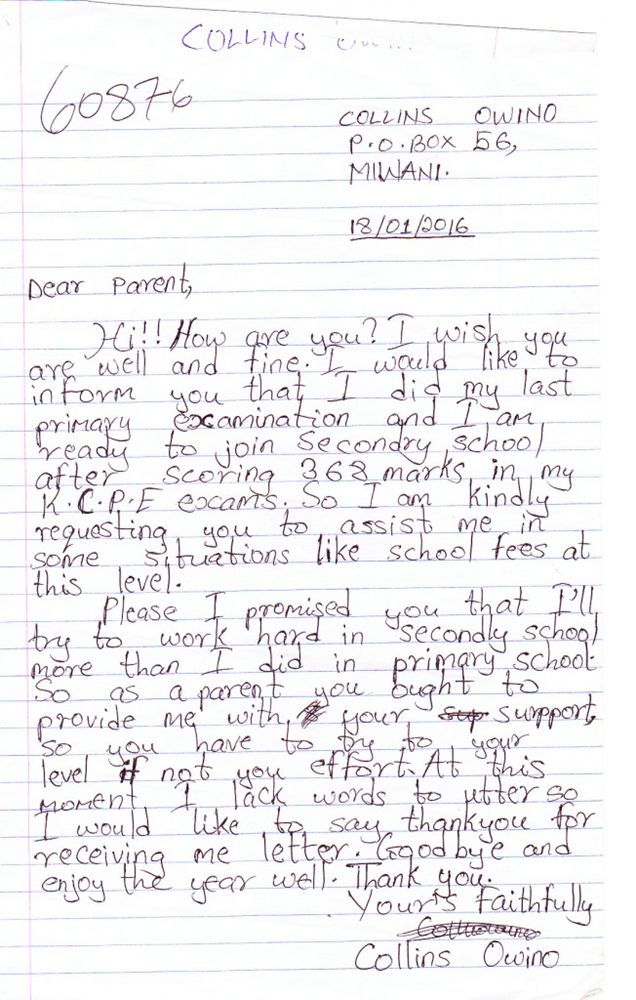 COLLINS
60876
COLLINS OWINO
P.O.BOX 56,
MIWANI.
18/01/2016
Dear Parent,
Hi!! How are you? I wish you
are well and fine. I would like to
inform you that I did my last
primary examination and I am
ready to join Secondry school
after scoring 368 marks in my
K.C.P.E exams. So I am kindly
requesting you to assist me in
some situations like school fees at
this level.
Please I promised you that I'll
try to work hard in secondly school
more than I did in primary school.
So as a parent you ought to
provide me with your sup surpport,
so you have to try to your
level if not you effort. At this
moment I lack words to utter so
I would like to say thankyou for
receiving me letter. Goodbye and
enjoy the year well. Thank you.
Your's Faithfully
Collins Owino